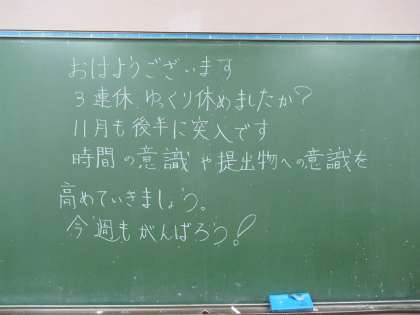 おはようございます
3連休、ゆっくり休めましたか?
11月も後半に突入です
時間の意識や提出物への意識を
高めていきましょう。
今週もがんばろう!